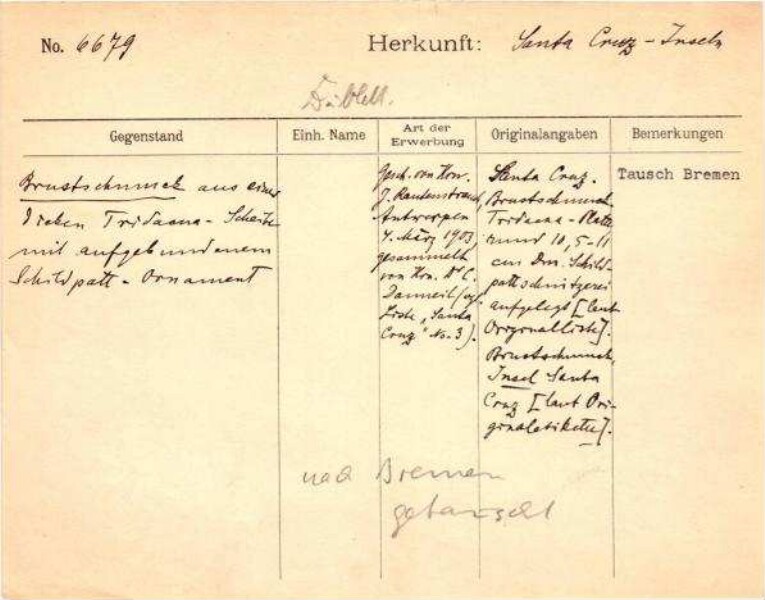 No. 6679
Herkunft: Santa Cruz-Inseln
Dublett.
Gegenstand
Einh. Name
Art der Erwerbung
Originalangaben
Bemerkungen
Brustschmuck aus einer
dicken Tridacna-Scheibe
mit aufgebundenem
Schildpatt-Ornament
Gesch. von Hrn.
J. Rautenstrauch
Antwerpen
4. März 1903
gesammelt
von Hrn. Dr C.
Danneil (cf.
Liste „Santa
Cruz" No. 3).
Santa Cruz.
Brustschmuck
Tridacna-Platte
rund 10,5-11
cm Dm. Schild-
pattschnitzerei
aufgelegt [laut
Originalliste].
Brustschmuck,
Insel Santa
Cruz [laut Ori-
ginaletikette].
Tausch Bremen
nach Bremen
getauscht